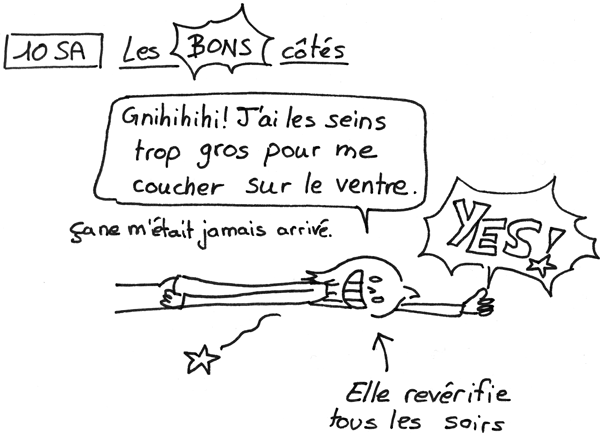 10 SA Les BONS côtés
Gnihihihi! J'ai les seins
trop gros pour me
coucher sur le ventre.
ça ne m'était jamais arrivé.
YES!
Elle revérifie
tous les soirs